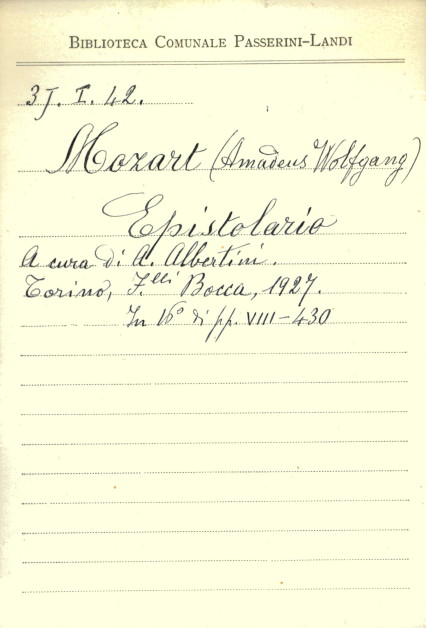 BIBLIOTECA COMUNALE PASSERINI-LANDI
3J. I. 42.
Mozart (Amadeus Wolfgang)
Epistolario
A cura di A. Albertini.
Torino, F.lli Bocca, 1927.
In 16º di pp. VIII-430